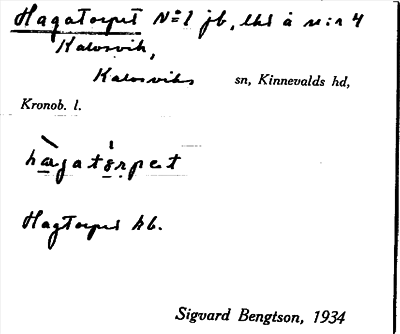 Hagatorpet No 1 jb, lht å n:r 4
Kalvsvik,
Kalvsviks sn, Kinnevalds hd,
Kronob. l.
hagatorpet
Hagtorpet kb.
Sigvard Bengtson, 1934